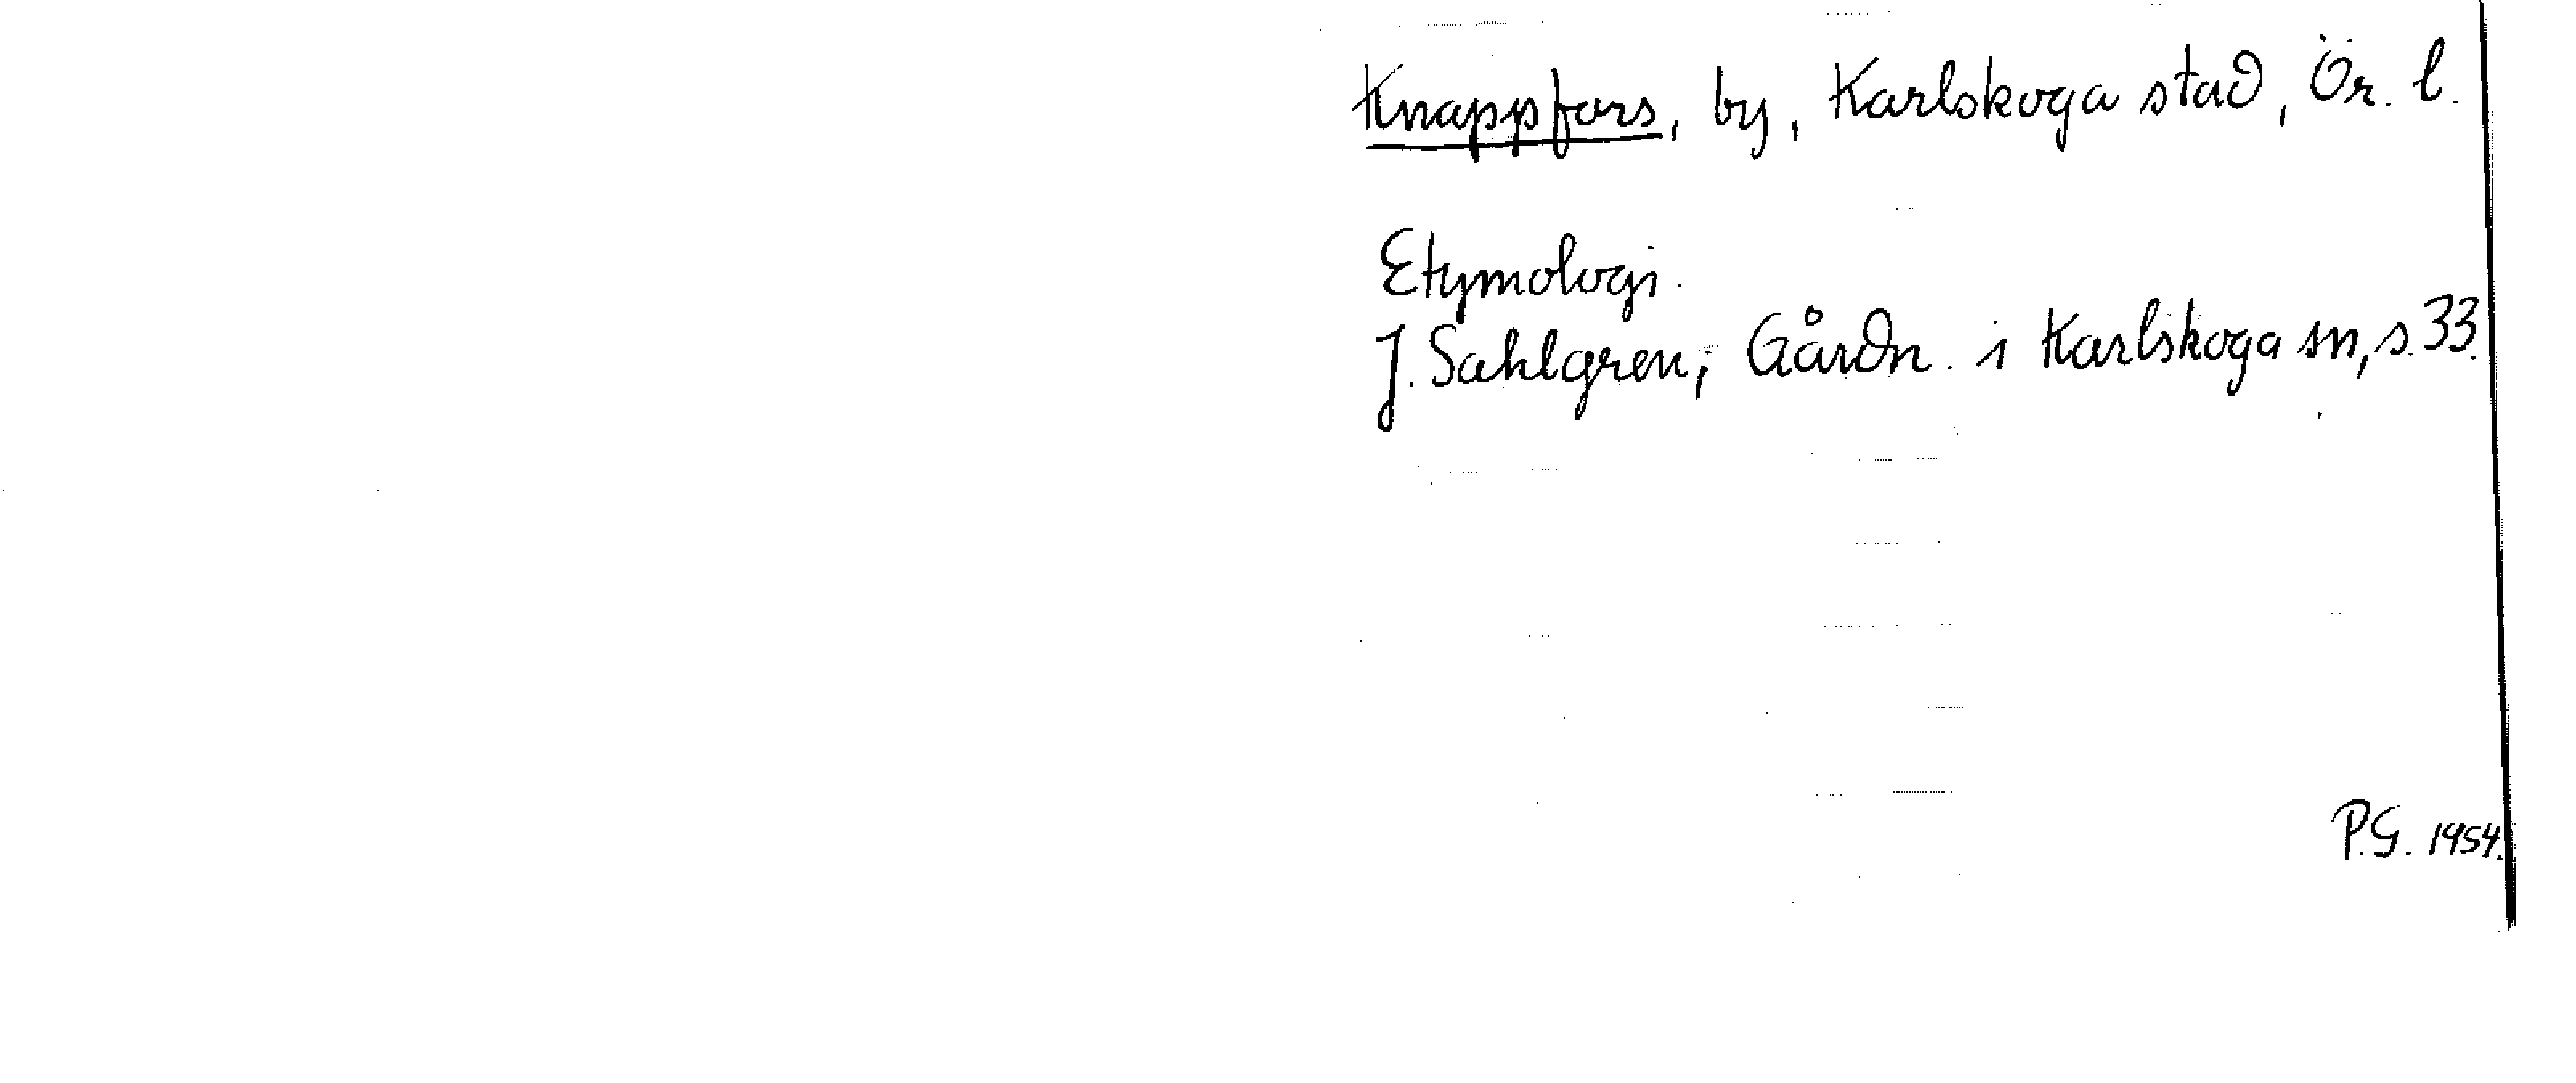 Knappfors, by, Karlskoga stad, Ör. l.
Etymologi.
J. Sahlgren, Gårdn. i Karlskoga sn, s. 33.
P.G. 1954.